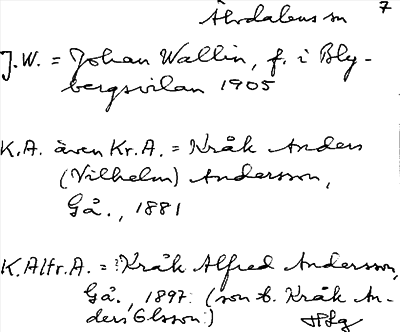 Älvdalens sn 7
J.W. = Johan Wallin, f. i Bly-
bergsvilan 1905
K.A. även Kr.A. = Kråk Anders
(Vilhelm) Andersson,
Gå., 1881
K.Alfr.A. = ?Kråk Alfred Andersson,
Gå., 1897. (son t. Kråk An-
ders Olsson.)